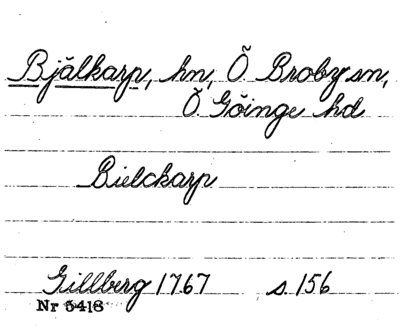 Bjälkarp, hn, Ö. Broby sn,
Ö. Göinge hd
Bielckarp
Gillberg 1767 s. 156
Nr 5418